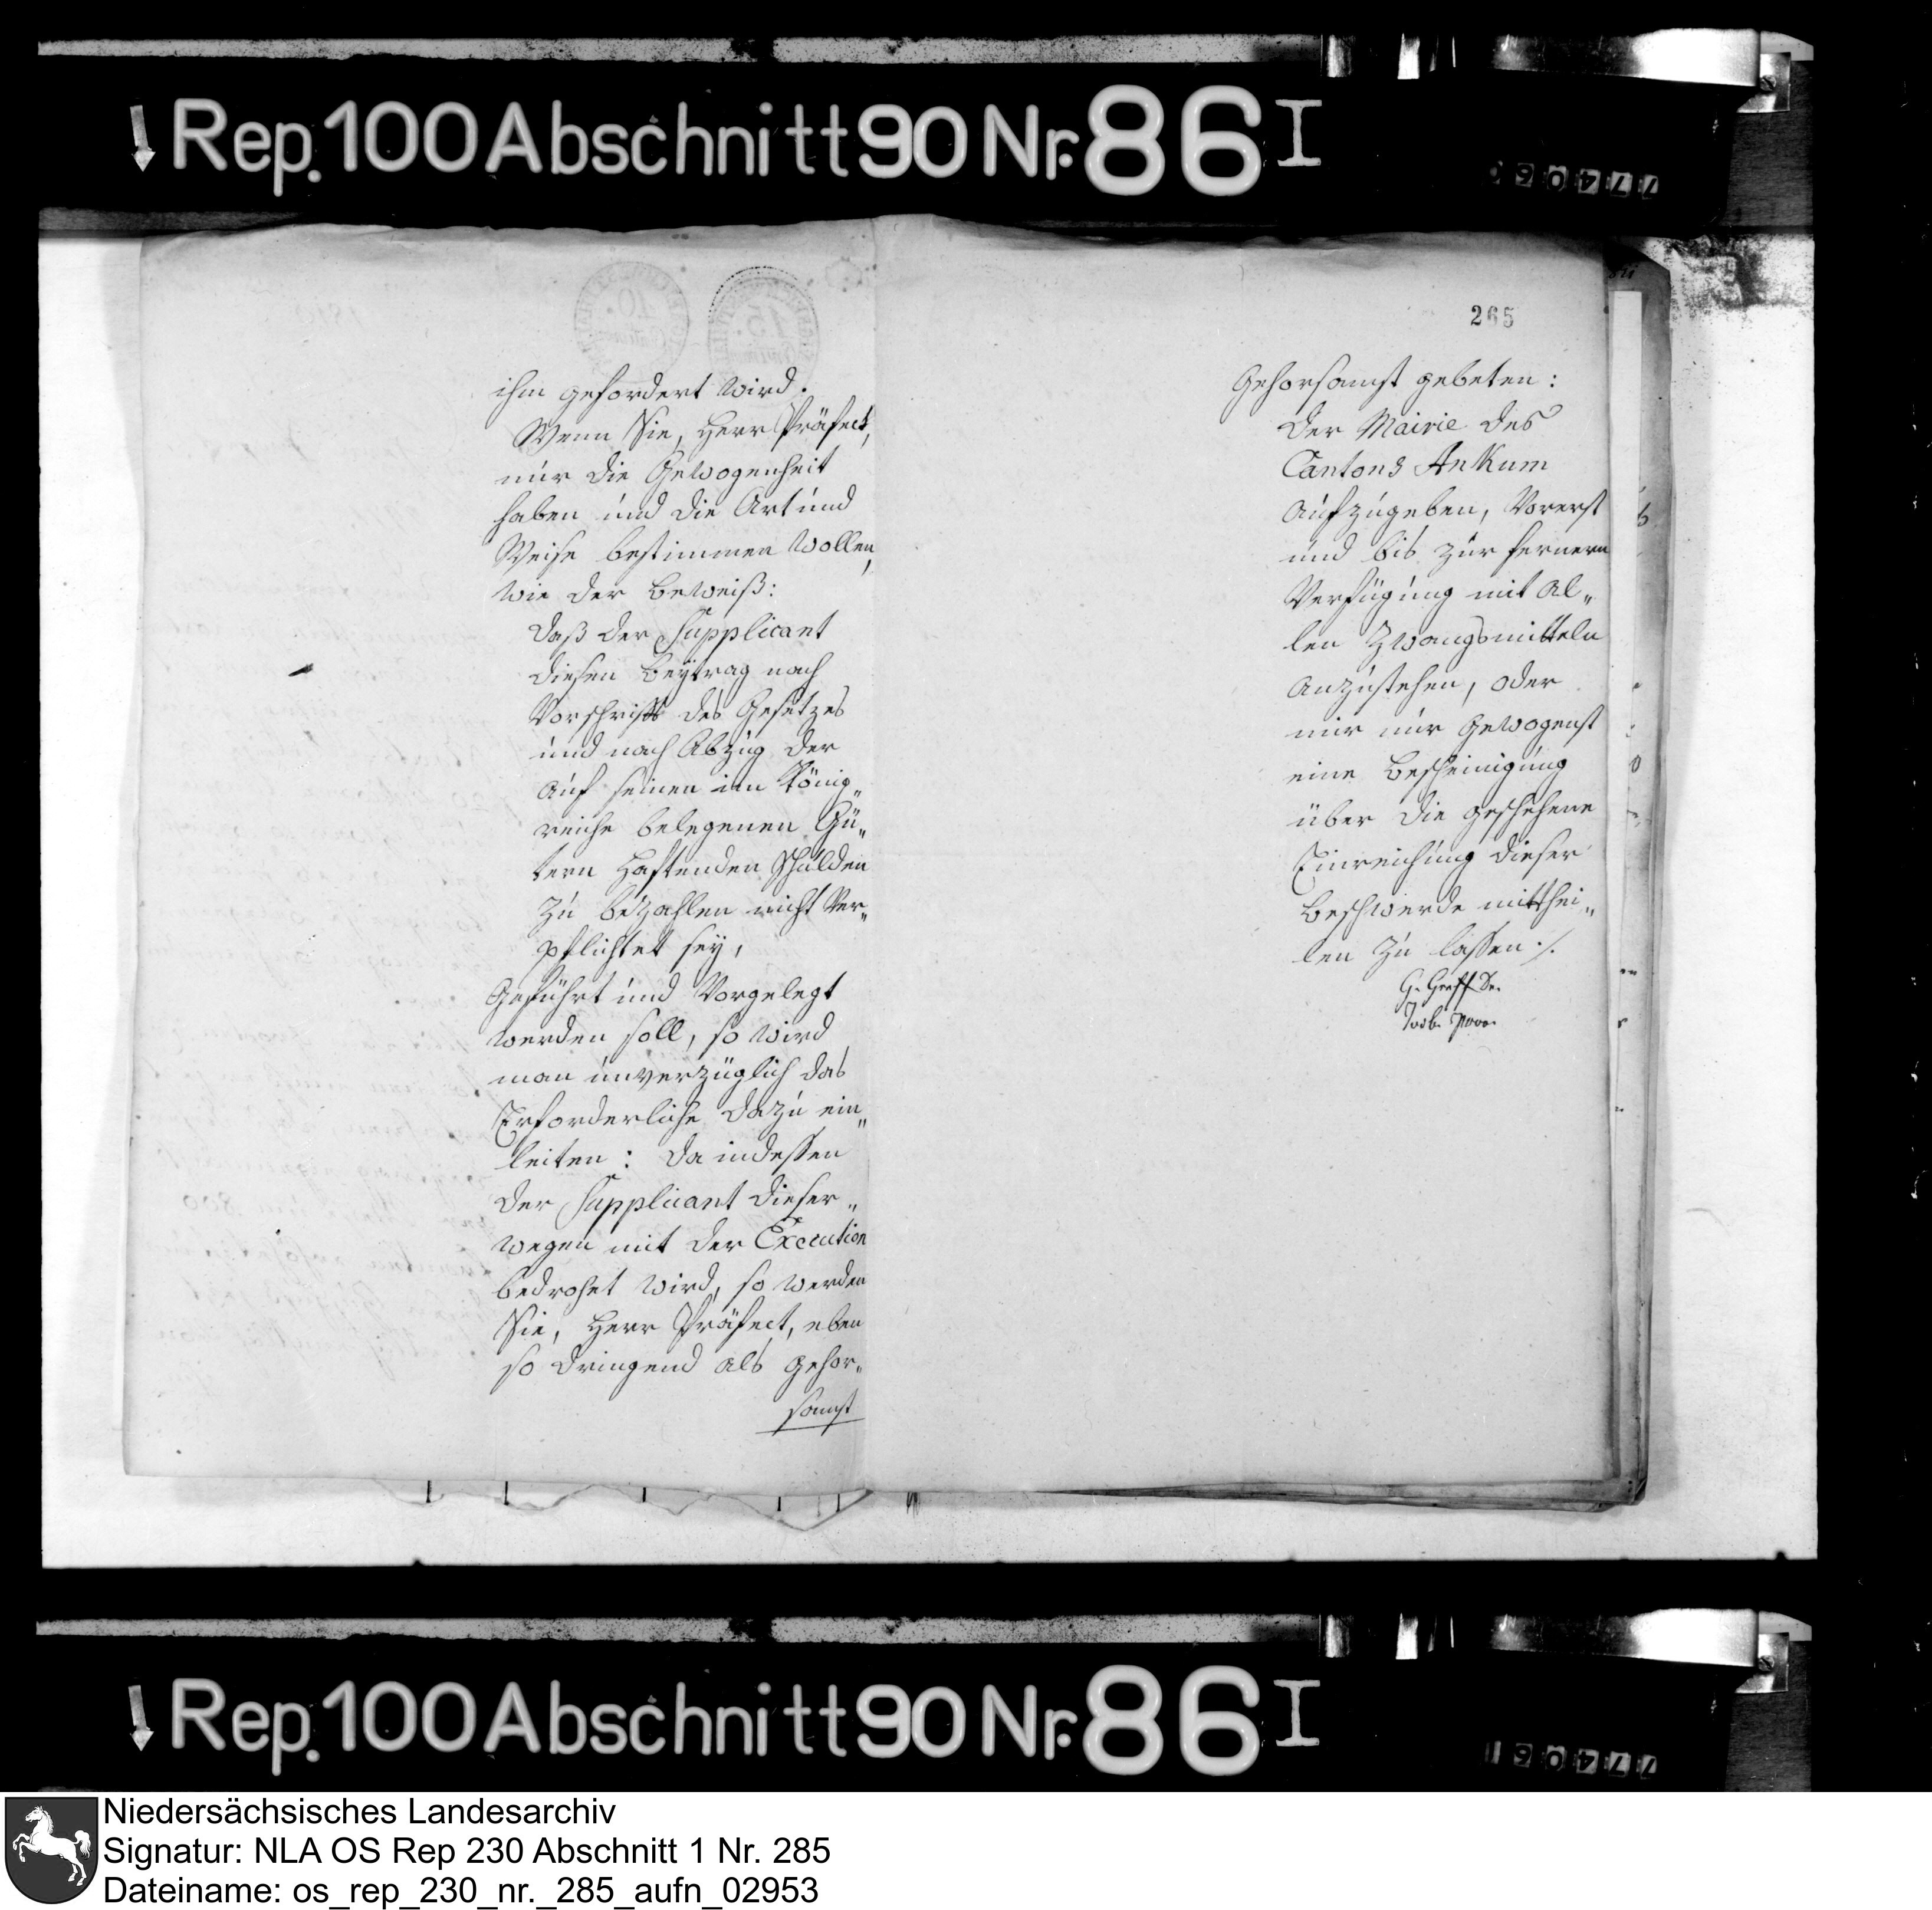 Rep. 100 Abschnitt 90 Nr. 86 I
ihm gefordert wird.
Wenn Sie, Herr Präfect,
nur die Gewogenheit
haben und die Art und
Weise bestimmen wollen,
wie der Beweiß:
daß der Supplicant
diesen Beytrag nach
Vorschrift des Gesetzes
und nach Abzug der
auf seinen im König„
reiche belegenen Gü„
tern haftenden Schulden
zu bezahlen nicht ver„
pflichtet sey,
geführt und vorgelegt
werden soll, so wird
man unverzüglich das
Erforderliche dazu ein„
leiten: da indessen
der Supplicant dieser„
wegen mit der Execution
bedrohet wird, so werden
Sie, Herr Präfect, eben
so dringend als gehor„
samst
265
Gehorsamst gebeten:
der Mairie des
Cantons Ankum
aufzugeben, vorerst
und bis zur fernern
Verfügung mit al„
len Zwangsmitteln
anzustehen, oder
mir nur gewogenst
eine Bescheinigung
über die geschehene
Einreichung dieser
Beschwerde mitthei„
len zu lassen ./.
Rep. 100 Abschnitt 90 Nr. 86 I
Niedersächsisches Landesarchiv
Signatur: NLA OS Rep 230 Abschnitt 1 Nr. 285
Dateiname: os_rep_230_nr._285_aufn_02953